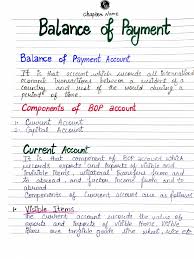 Chapter Name
Balance of Payment
Balance of Payment Account
It is that account which records all International
economic transactions between a resident of a
country and rest of the world during a
period of time.
Components of BOP account
1. Current Account
2. Capital Account
Current Account
It is that component of BOP account which
records exports and imports of visible and
invisible items, unilateral transfers from and
to abroad and factor income from and to
abroad
Components of current account are as follows
Visible Items
The current account records the value of
exports and imports of visible items, visible
items are tangible goods like wheat, rice etc